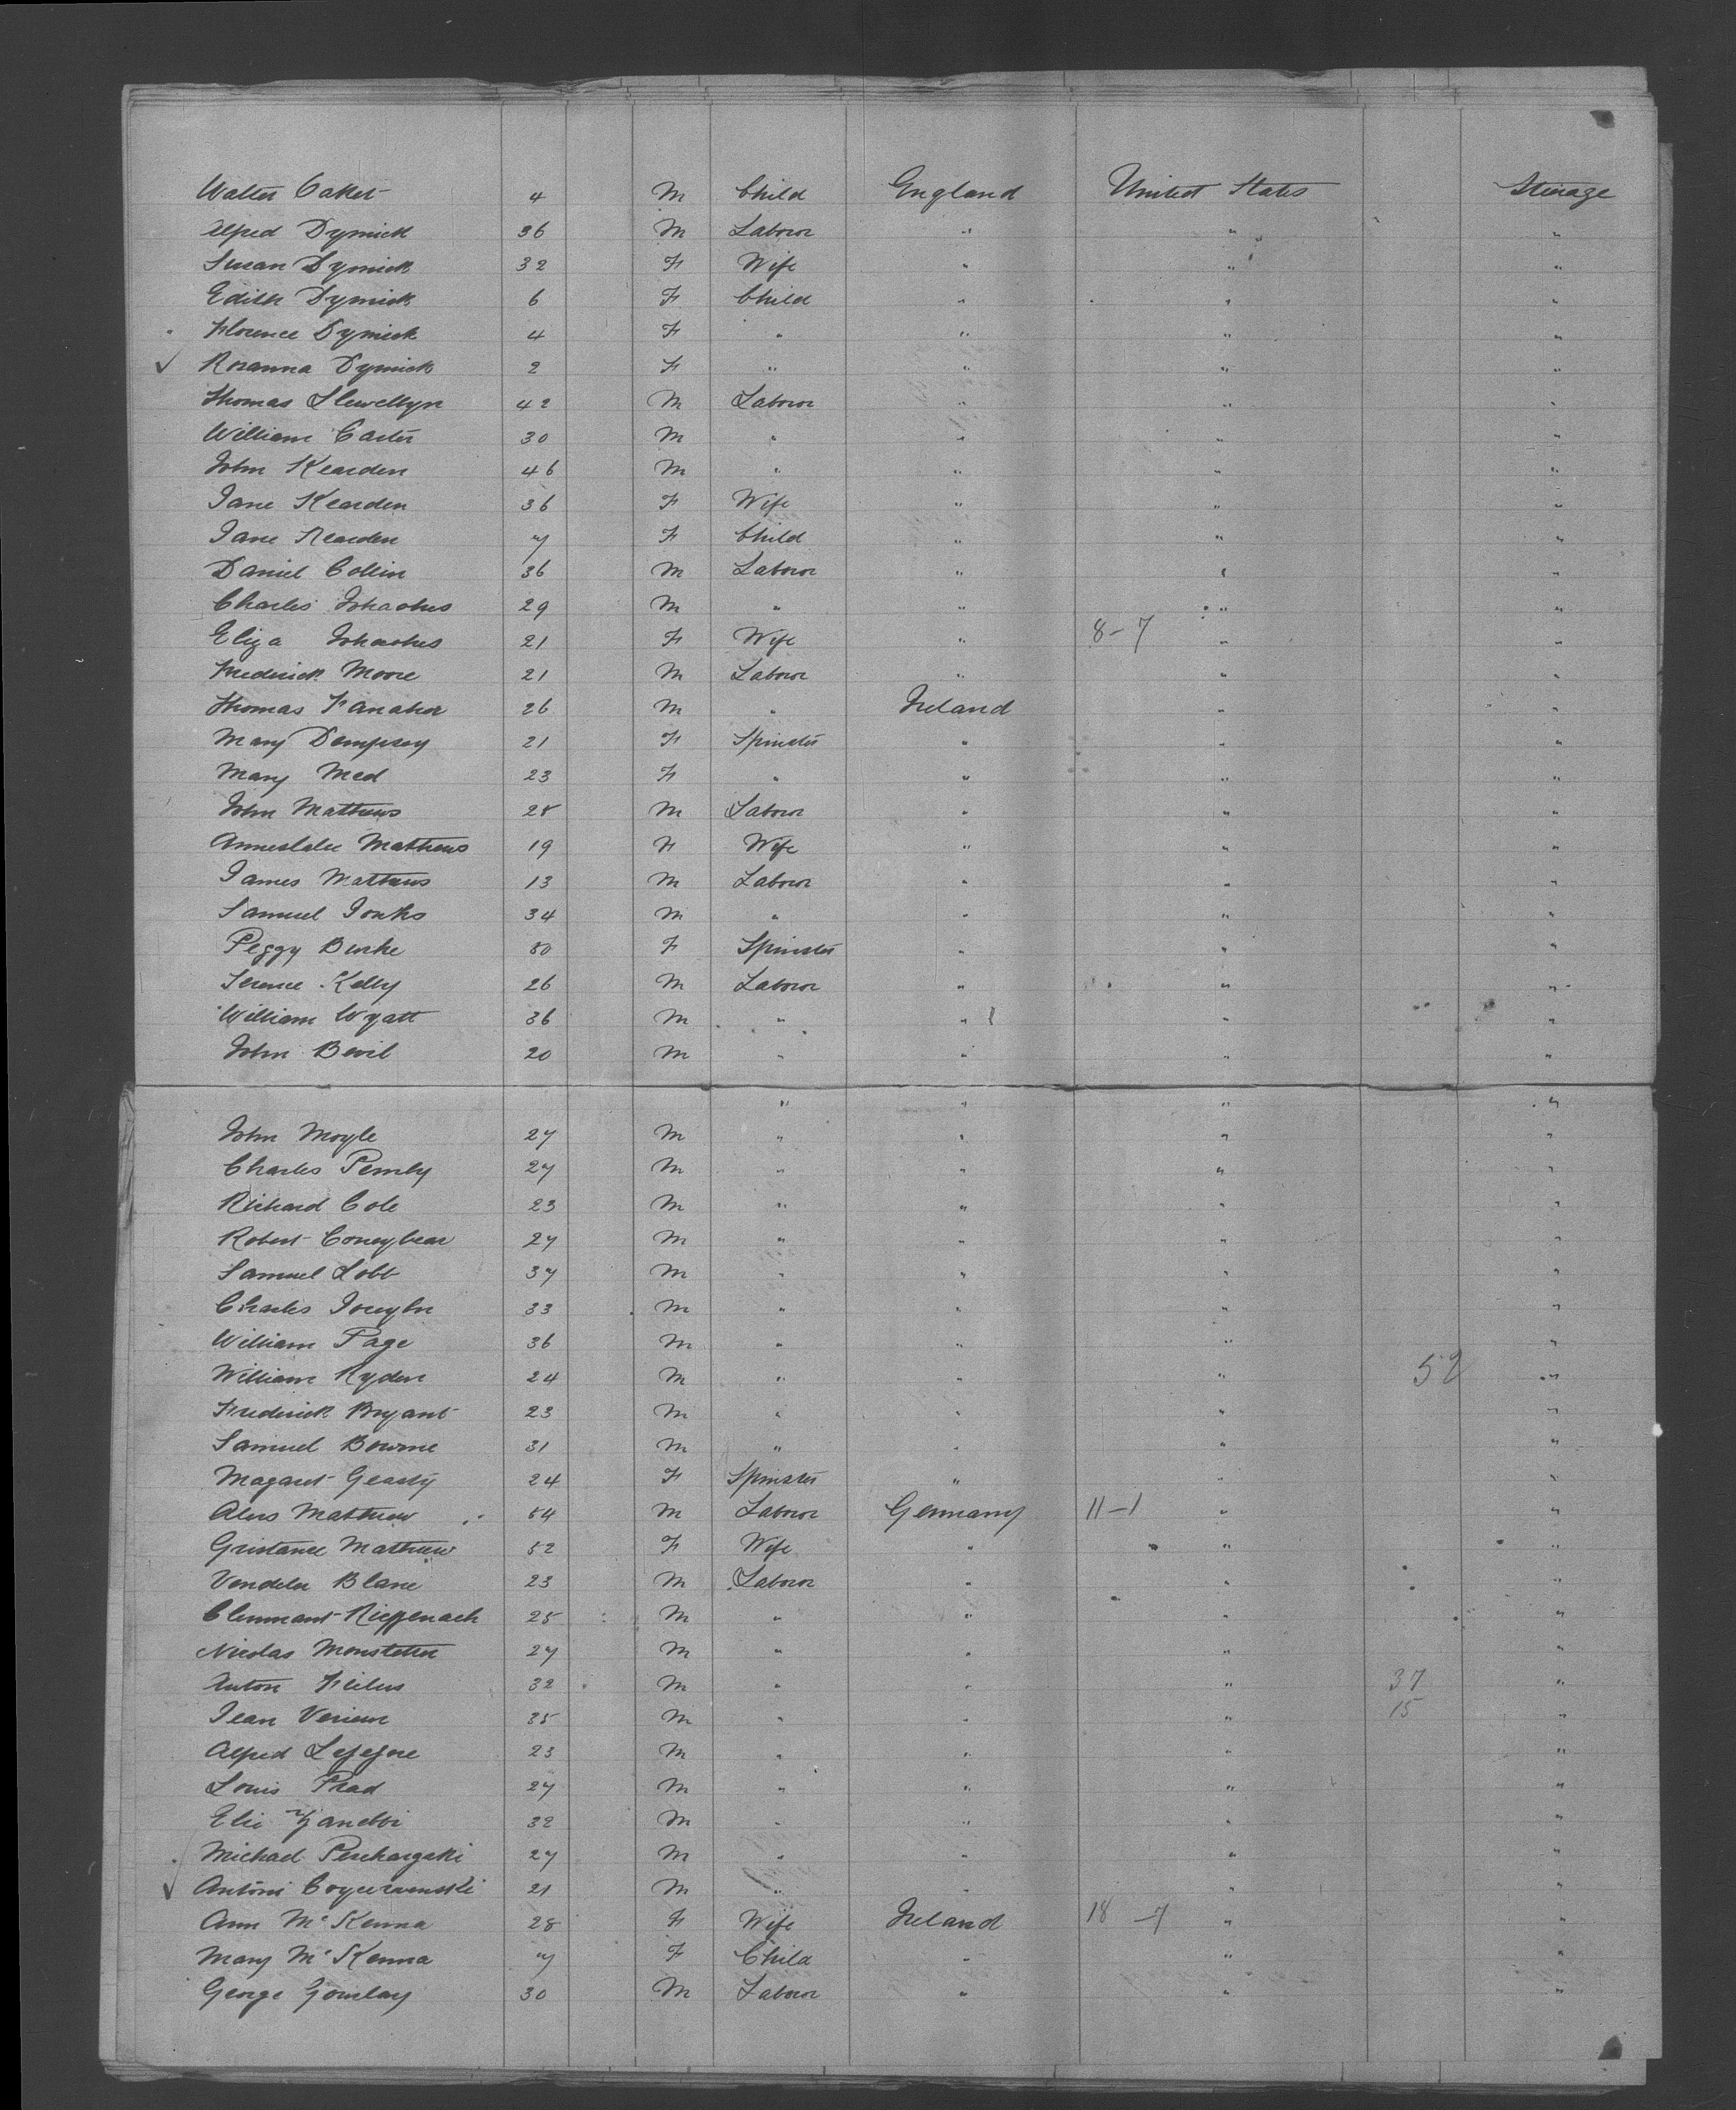 Walter Oaket 4 M Child England United States Steerage
Alfred Dymick 36 M Laborer " " "
Susan Dymick 32 F Wife " " "
Edith Dymick 6 F Child " " "
Florence Dymick 4 F " " " "
✓ Rosanna Dymick 2 F " " " "
Thomas Llewellyn 42 M Laborer " " "
William Carter 30 M " " " "
John Rearden 46 M " " " "
Jane Rearden 36 F Wife " " "
Jane Rearden 7 F Child " " "
Daniel Collin 36 M Laborer " " "
Charles 29 M " " " "
Eliza 21 F Wife " 8-7 " "
Frederick Moore 21 M Laborer " " "
Thomas Fanaher 26 M " Ireland " "
Mary Dempsey 21 F Spinster " " "
Mary Mead 23 F " " " "
John Mathews 25 M Laborer " " "
Mathews 19 F Wife " " "
James Mathews 13 M Laborer " " "
Samuel Jonks 34 M " " " "
Peggy Burke 50 F Spinster " " "
Terence Kelly 26 M Laborer " " "
William Wyatt 36 M " " " "
John Bevil 20 M " " " "
" " " "
John Moyle 27 M " " " "
Charles Pemby 27 M " " " "
Richard Cole 23 M " " " "
Robert Coneybear 27 M " " " "
Samuel Lobb 37 M " " " "
Charles 33 M " " " "
William Page 36 M " " " "
William Ryden 24 M " " " 52 "
Frederick Bryant 23 M " " " "
Samuel Bourne 31 M " " " "
Magaret Gearty 24 F Spinster " " "
Mathiew 54 M Laborer Germany 11-1 " "
Mathiew 52 F Wife " " "
Blane 23 M Laborer " " "
25 M " " " "
Nicolas Monstetter 27 M " " " "
Anton 32 M " " " 37 "
Jean 35 M " " " 15 "
Alfred 23 M " " " "
Louis Prad 27 M " " " "
Elie Zanebbi 32 M " " " "
Michael 27 M " " " "
✓ Antoni 21 M " " " "
Ann McKenna 28 F Wife Ireland 18-7 " "
Mary McKenna 7 F Child " " "
George Gourlay 30 M Laborer " " "